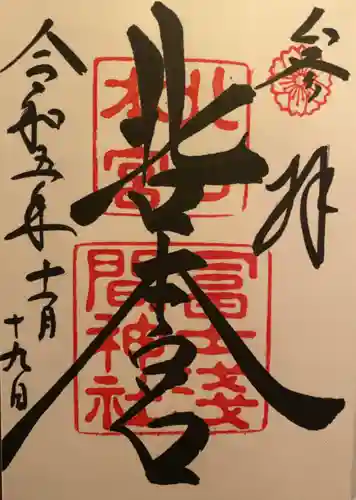 奉拝
北口本宮
北口
本宮
冨士浅
間神社
令和五年十一月
十九日